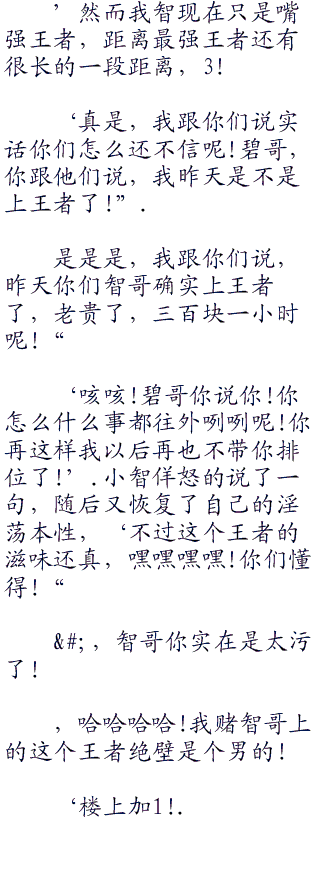 ’然而我智现在只是嘴
强王者，距离最强王者还有
很长的一段距离，3!
‘真是，我跟你们说实
话你们怎么还不信呢!碧哥，
你跟他们说，我昨天是不是
上王者了!”.
是是是，我跟你们说，
昨天你们智哥确实上王者
了，老贵了，三百块一小时
呢!“
‘咳咳!碧哥你说你!你
怎么什么事都往外咧咧呢!你
再这样我以后再也不带你排
位了!’.小智佯怒的说了一
句，随后又恢复了自己的淫
荡本性，‘不过这个王者的
滋味还真，嘿嘿嘿嘿!你们懂
得!“
&#;，智哥你实在是太污
了!
，哈哈哈哈!我赌智哥上
的这个王者绝壁是个男的!
‘楼上加1!.